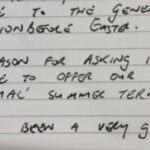 E TO THE GENE
ION BEFORE EASTER.
ASON FOR ASKING I
E TO OFFER OUR
MAL' SUMMER TERM
BEEN A VERY G